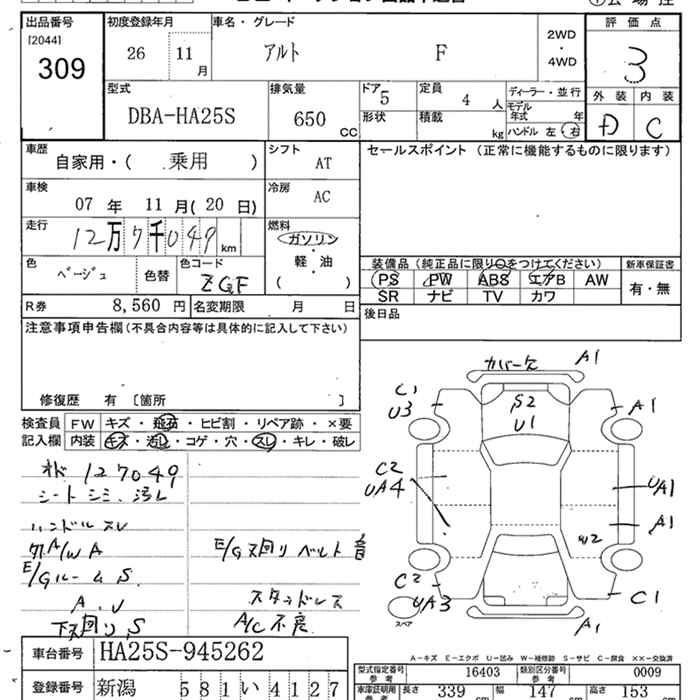 出品番号 初度登録年月 車名・グレード 評価点
[2044]
309 26 11月 アルト F 2WD・4WD 3
外装 内装
D C
型式 排気量 ドア 定員 ディーラー・並行
DBA-HA25S 650cc 5 4人 モデル年式 年
形状 積載 kg ハンドル 左・右
車歴 シフト セールスポイント (正常に機能するものに限ります)
自家用・( 乗用 ) AT
車検 冷房
07年 11月(20日) AC
走行 燃料
12万7千049km ガソリン・軽・油( )
色 色替 色コード
ベージュ ZGF
装備品 (純正品に限り○をつけてください) 新車保証書
PS PW ABS エアB AW 有・無
SR ナビ TV カワ
R券 8,560円 名変期限 月 日 後日品
注意事項申告欄(不具合内容等は具体的に記入して下さい)
修復歴 有 〔箇所 〕
検査員 FW キズ・飛石・ヒビ割・リペア跡・×要
記入欄 内装 キズ・汚レ・コゲ・穴・スレ・キレ・破レ
カバーケ A1
C1 S2 A1
U3 U1
C2 UA1
UA4 A1
W2
C2 C1
UA3 A1
スペア
メド 127049
シート シミ、汚レ
ハンドル スレ
A/W A E/G廻り ベルト音
E/Gルーム S
A、U スタッドレス
下廻り、S A/C不良
A-キズ E-エクボ U-凹み W-補修跡 S-サビ C-腐食 ××-交換済
車台番号 HA25S-945262
型式指定番号 参考 16403 類別区分番号 参考 0009
登録番号 新潟 581い4127
車庫証明用 参考 長さ 339cm 幅 147cm 高さ 153cm